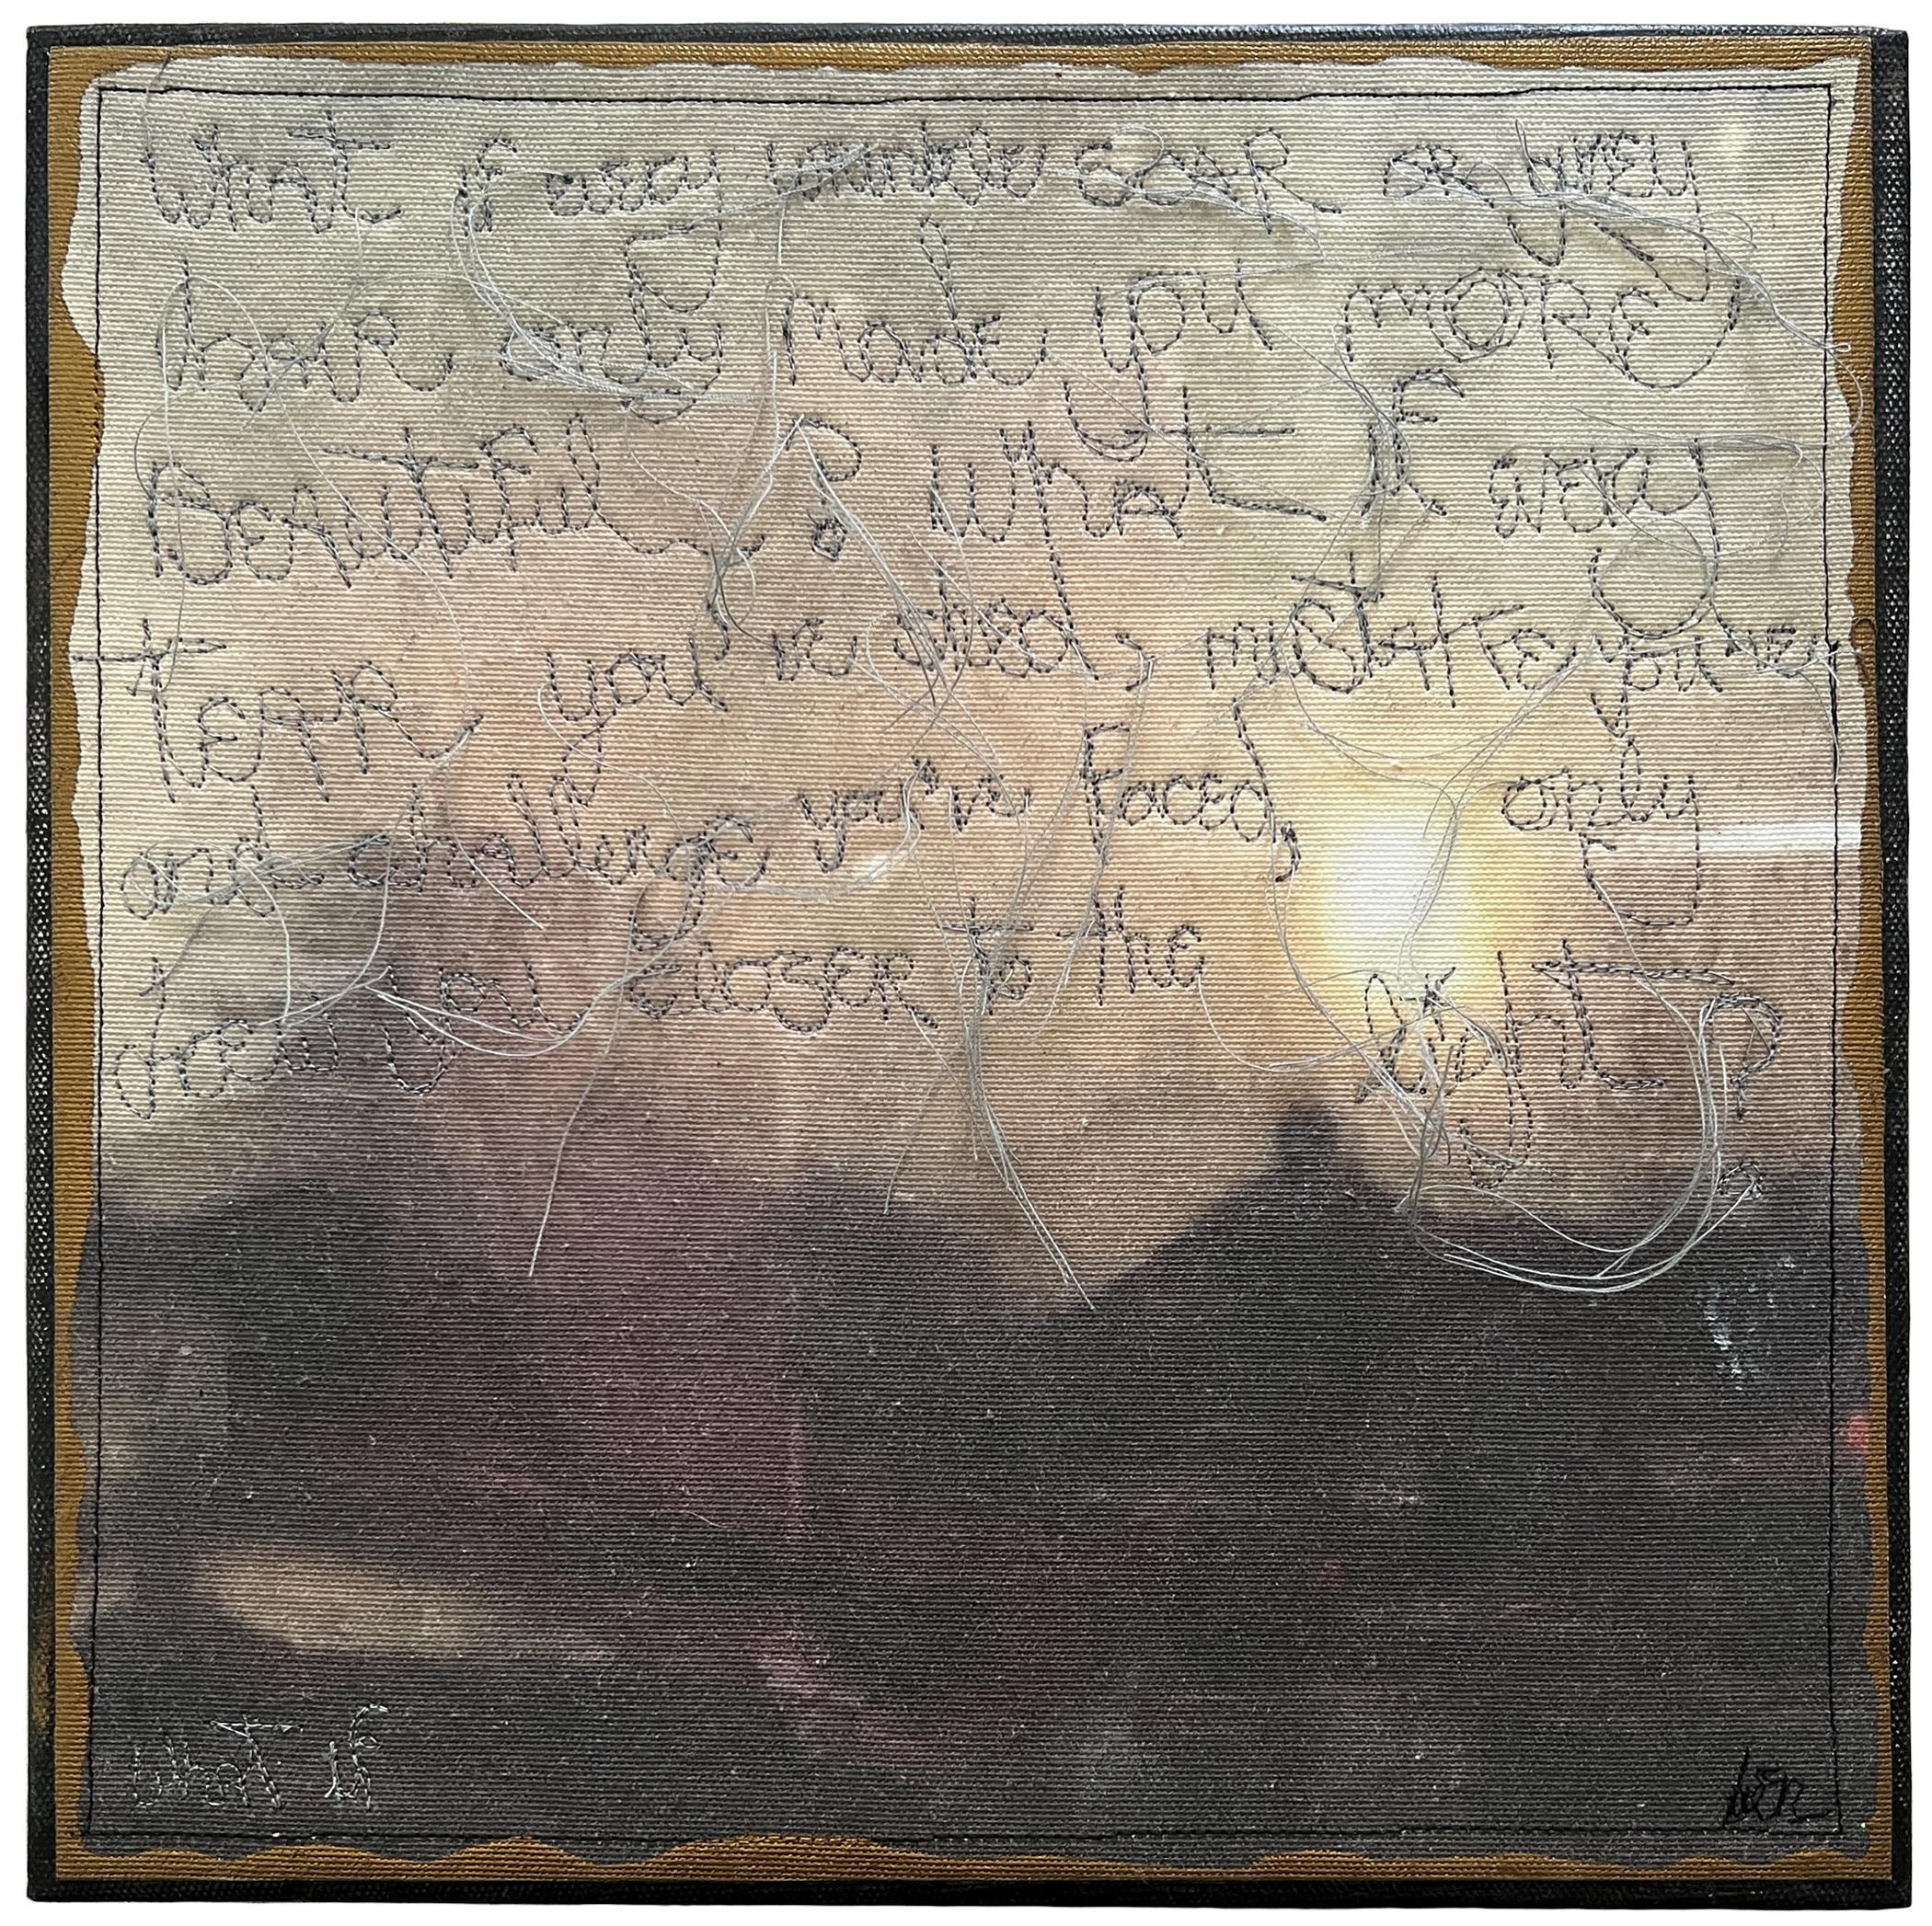 What if every wrinkle scar or grey
hair only made you more
Beautiful? What if every
tear you've shed, mistake you've
and challenge you've faced, only
drew you closer to the light?
What if